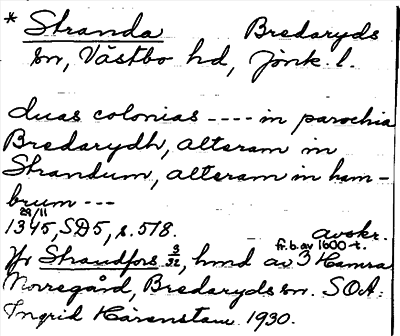 * Stranda Bredaryds
sn, Västbo hd, Jönk. l.
duas colonias ---- in parochia
Bredarydh, alteram in
Strandum, alteram in ham-
brum ---
29/11
1345, SD5, s. 518. avskr.
fr. b. av 1600-t.
Jfr Strandfors 3/32, hmd av 3 Hamra
Norregård, Bredaryds sn. SOA.
Ingrid Hårenstam 1930.